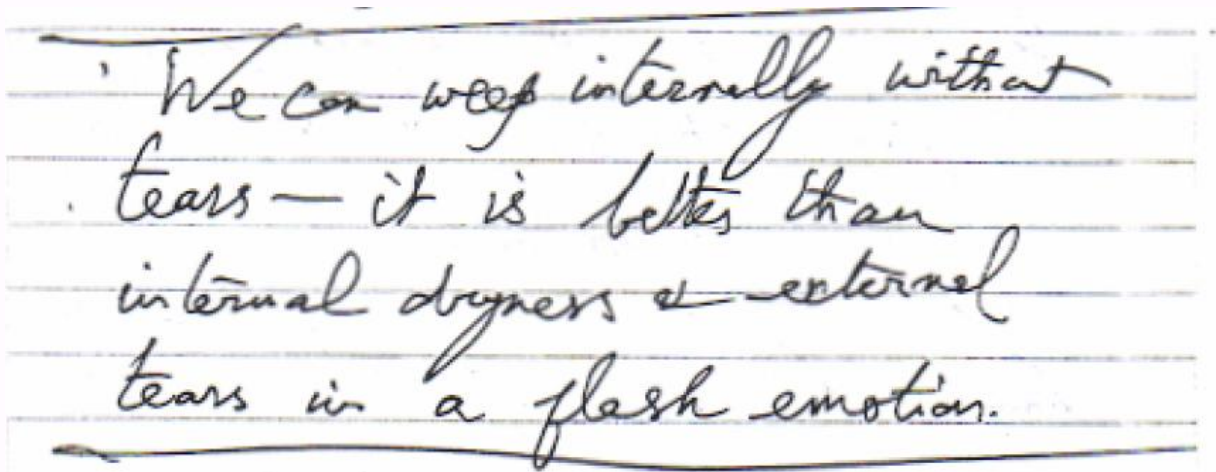 We can weep internally without
tears — it is better than
internal dryness & external
tears in a flash emotion.